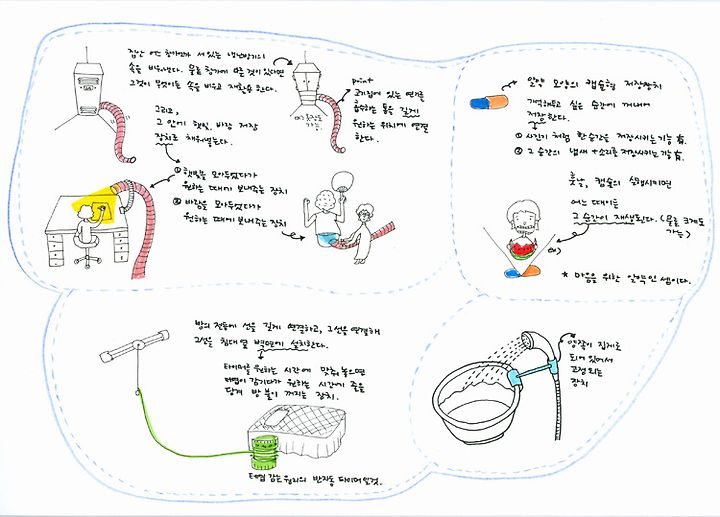 집안 어느 한가지가 서 있는 냉난방기의
속을 비워낸다. 물론 한가지 다른 것이 있다면
그것이 무엇이든 속을 비우고 재활용 한다.
그리고,
그 안에 햇빛, 바람 저장
장치로 채워넣는다.
① 햇빛을 모아두었다가
원하는 때에 보내주는 장치
② 바람을 모아두었다가
원하는 때에 보내주는 장치
point
고기집에 있는 연기를
흡수하는 통을 길게
원하는 위치에 연결
한다.
알약 모양의 캡슐형 저장장치
기억해두고 싶은 순간에 꺼내어
저장한다.
① 사진기 처럼 한순간을 저장시키는 기능 有.
② 그 순간의 냄새+소리를 저장시키는 기능 有.
훗날, 캡슐의 실행시키면
어느 때이든
그 순간이 재생된다. (몸을 크게도
가능)
ex)
* 마음을 위한 알약인 셈이다.
방의 전등에 선을 길게 연결하고, 그선을 연결해
그선을 침대 옆 벽면에 설치한다.
타이머를 원하는 시간에 맞춰 놓으면
태엽이 감기다가 원하는 시간에 줄을
당겨 방 불이 꺼지는 장치.
태엽 감는 원리의 반자동 타이머일것.
양쪽이 집게로
되어 있어서
고정되는
장치